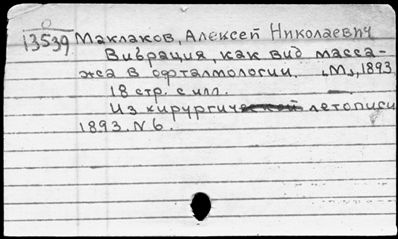 0
13539 Маклаков, Алексей Николаевич
Вибрация, как вид масса-
жа в офталмологии. „М", 1893
18 стр. с илл.
Из хирургической летописи
1893. N 6.